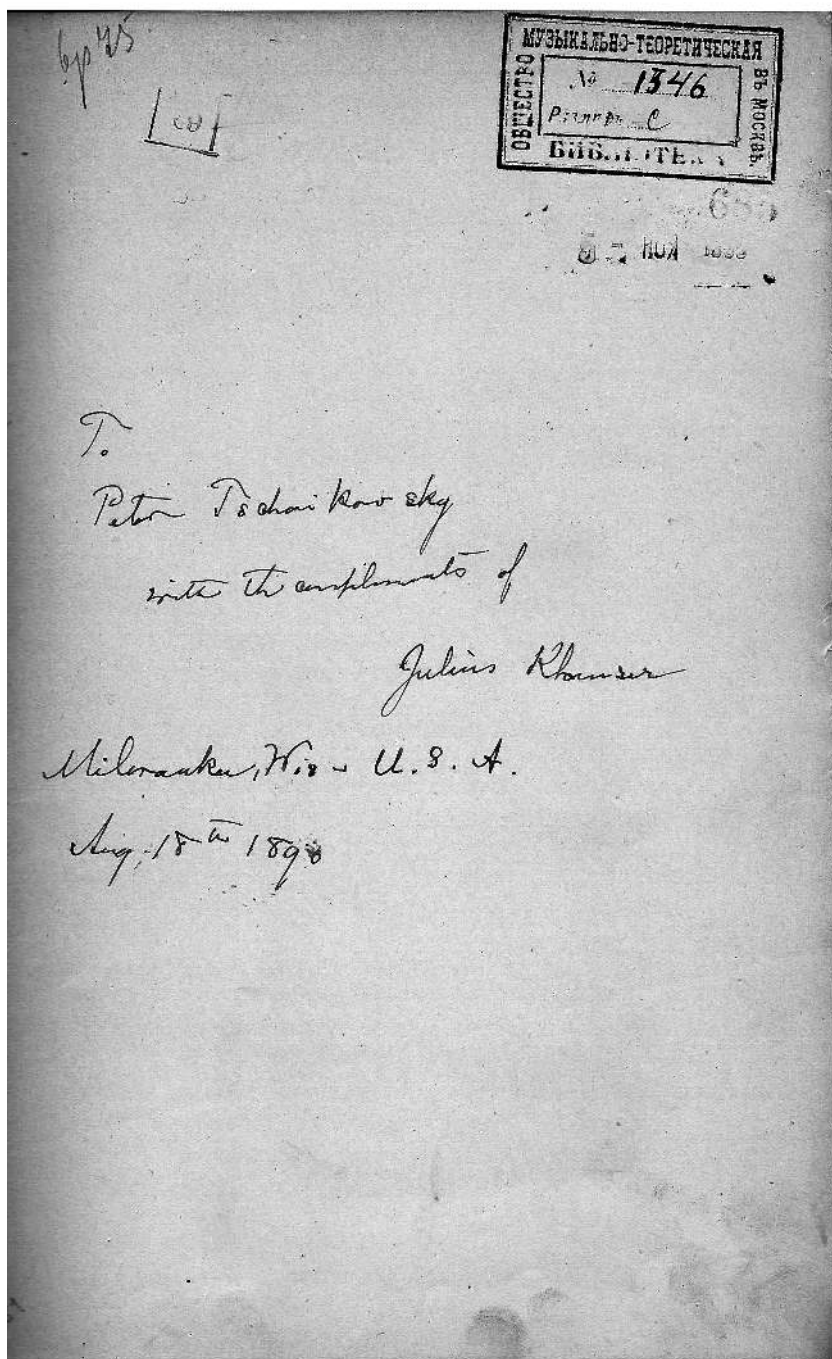 МУЗЫКАЛЬНО-ТЕОРЕТИЧЕСКАЯ
ОБЩЕСТВО
№ 1346
С
ВЪ МОСКВѢ.
БИБЛИОТЕКА
To
Peter Tschaikowsky
with the compliments of
Julius Klauser
Milwaukee, Wis - U.S.A.
Aug, 18th 1890